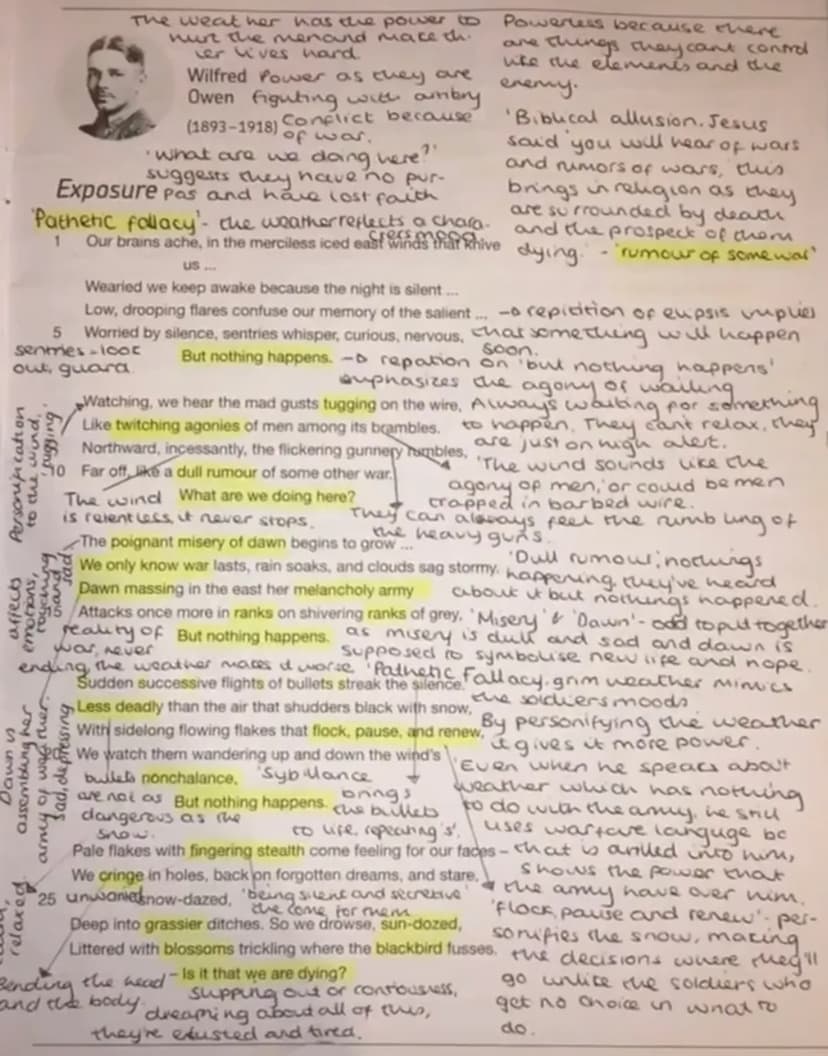 The weather has the power to
hurt the men and make th-
ier lives hard
Wilfred Power as they are
Owen figuting with anbry
(1893–1918) Conflict because
of war.
'What are we doing here?'
suggests they have no pur-
Exposure pos and have lost faith
'Pathetic fallacy' - the weather reflects a chara-
cters mood
Powerless because there
are things they cant control
like the elements and the
enemy.
'Biblical allusion. Jesus
said 'you will hear of wars
and rumors of wars,' this
brings in religion as they
are surrounded by death
and the prospect of them
dying.' - 'rumour of some war'
1 Our brains ache, in the merciless iced east winds that knive
us ...
Wearied we keep awake because the night is silent ...
Low, drooping flares confuse our memory of the salient ... → repition of elipsis implies
5 Worried by silence, sentries whisper, curious, nervous, that something will happen
soon.
sentries - look
out, guard
But nothing happens. → repation on 'but nothing happens'
emphasizes the agony of waiting
Watching, we hear the mad gusts tugging on the wire, Always waiting for something
Like twitching agonies of men among its brambles. to happen. They cant relax, they
are just on high alert.
Northward, incessantly, the flickering gunnery rumbles,
10 Far off, like a dull rumour of some other war.
'The wind sounds like the
agony of men,' or could be men
trapped in barbed wire.
Personification
to the wind,
'tugging'
The wind What are we doing here?
is relentless, it never stops.
They can always feel the rumbling of
the heavy guns.
The poignant misery of dawn begins to grow ...
We only know war lasts, rain soaks, and clouds sag stormy.
'Dull rumour', nothings
happening, they've heard
about it but nothings happened.
Dawn massing in the east her melancholy army
Attacks once more in ranks on shivering ranks of grey,
'Misery' & 'Dawn' - odd to put together
as misery is dull and sad and dawn is
supposed to symbolise new life and hope.
affects
emotions,
sad
reality of But nothing happens.
war, never
ending, the weather makes it worse
'Pathetic Fallacy, grim weather mimics
the soldiers moods
Sudden successive flights of bullets streak the silence.
Less deadly than the air that shudders black with snow,
With sidelong flowing flakes that flock, pause, and renew,
We watch them wandering up and down the wind's
nonchalance,
By personifying the weather
it gives it more power.
Dawn is
assembling her
army of weather.
sad, depressing
bullets
are not as
dangerous as the
snow.
But nothing happens.
'Sybillance
brings
the bullets
to life, repeating 's'.
'Even when he speaks about
weather which has nothing
to do with the army, he still
uses warfare languge bc
that is drilled into him,
shows the power that
the army have over him.
Pale flakes with fingering stealth come feeling for our faces –
We cringe in holes, back on forgotten dreams, and stare,
25 snow-dazed,
unwanted
'being silent and secretive
the come for them
Deep into grassier ditches. So we drowse, sun-dozed,
Littered with blossoms trickling where the blackbird fusses.
– Is it that we are dying?
relaxed
'flock, pause and renew' - per-
sonifies the snow, making
the decisions where they'll
go unlike the soldiers who
get no choice in what to
do.
Bending the head
and the body.
slipping out or contiousness,
dreaming about all of this,
they're exusted and tired.